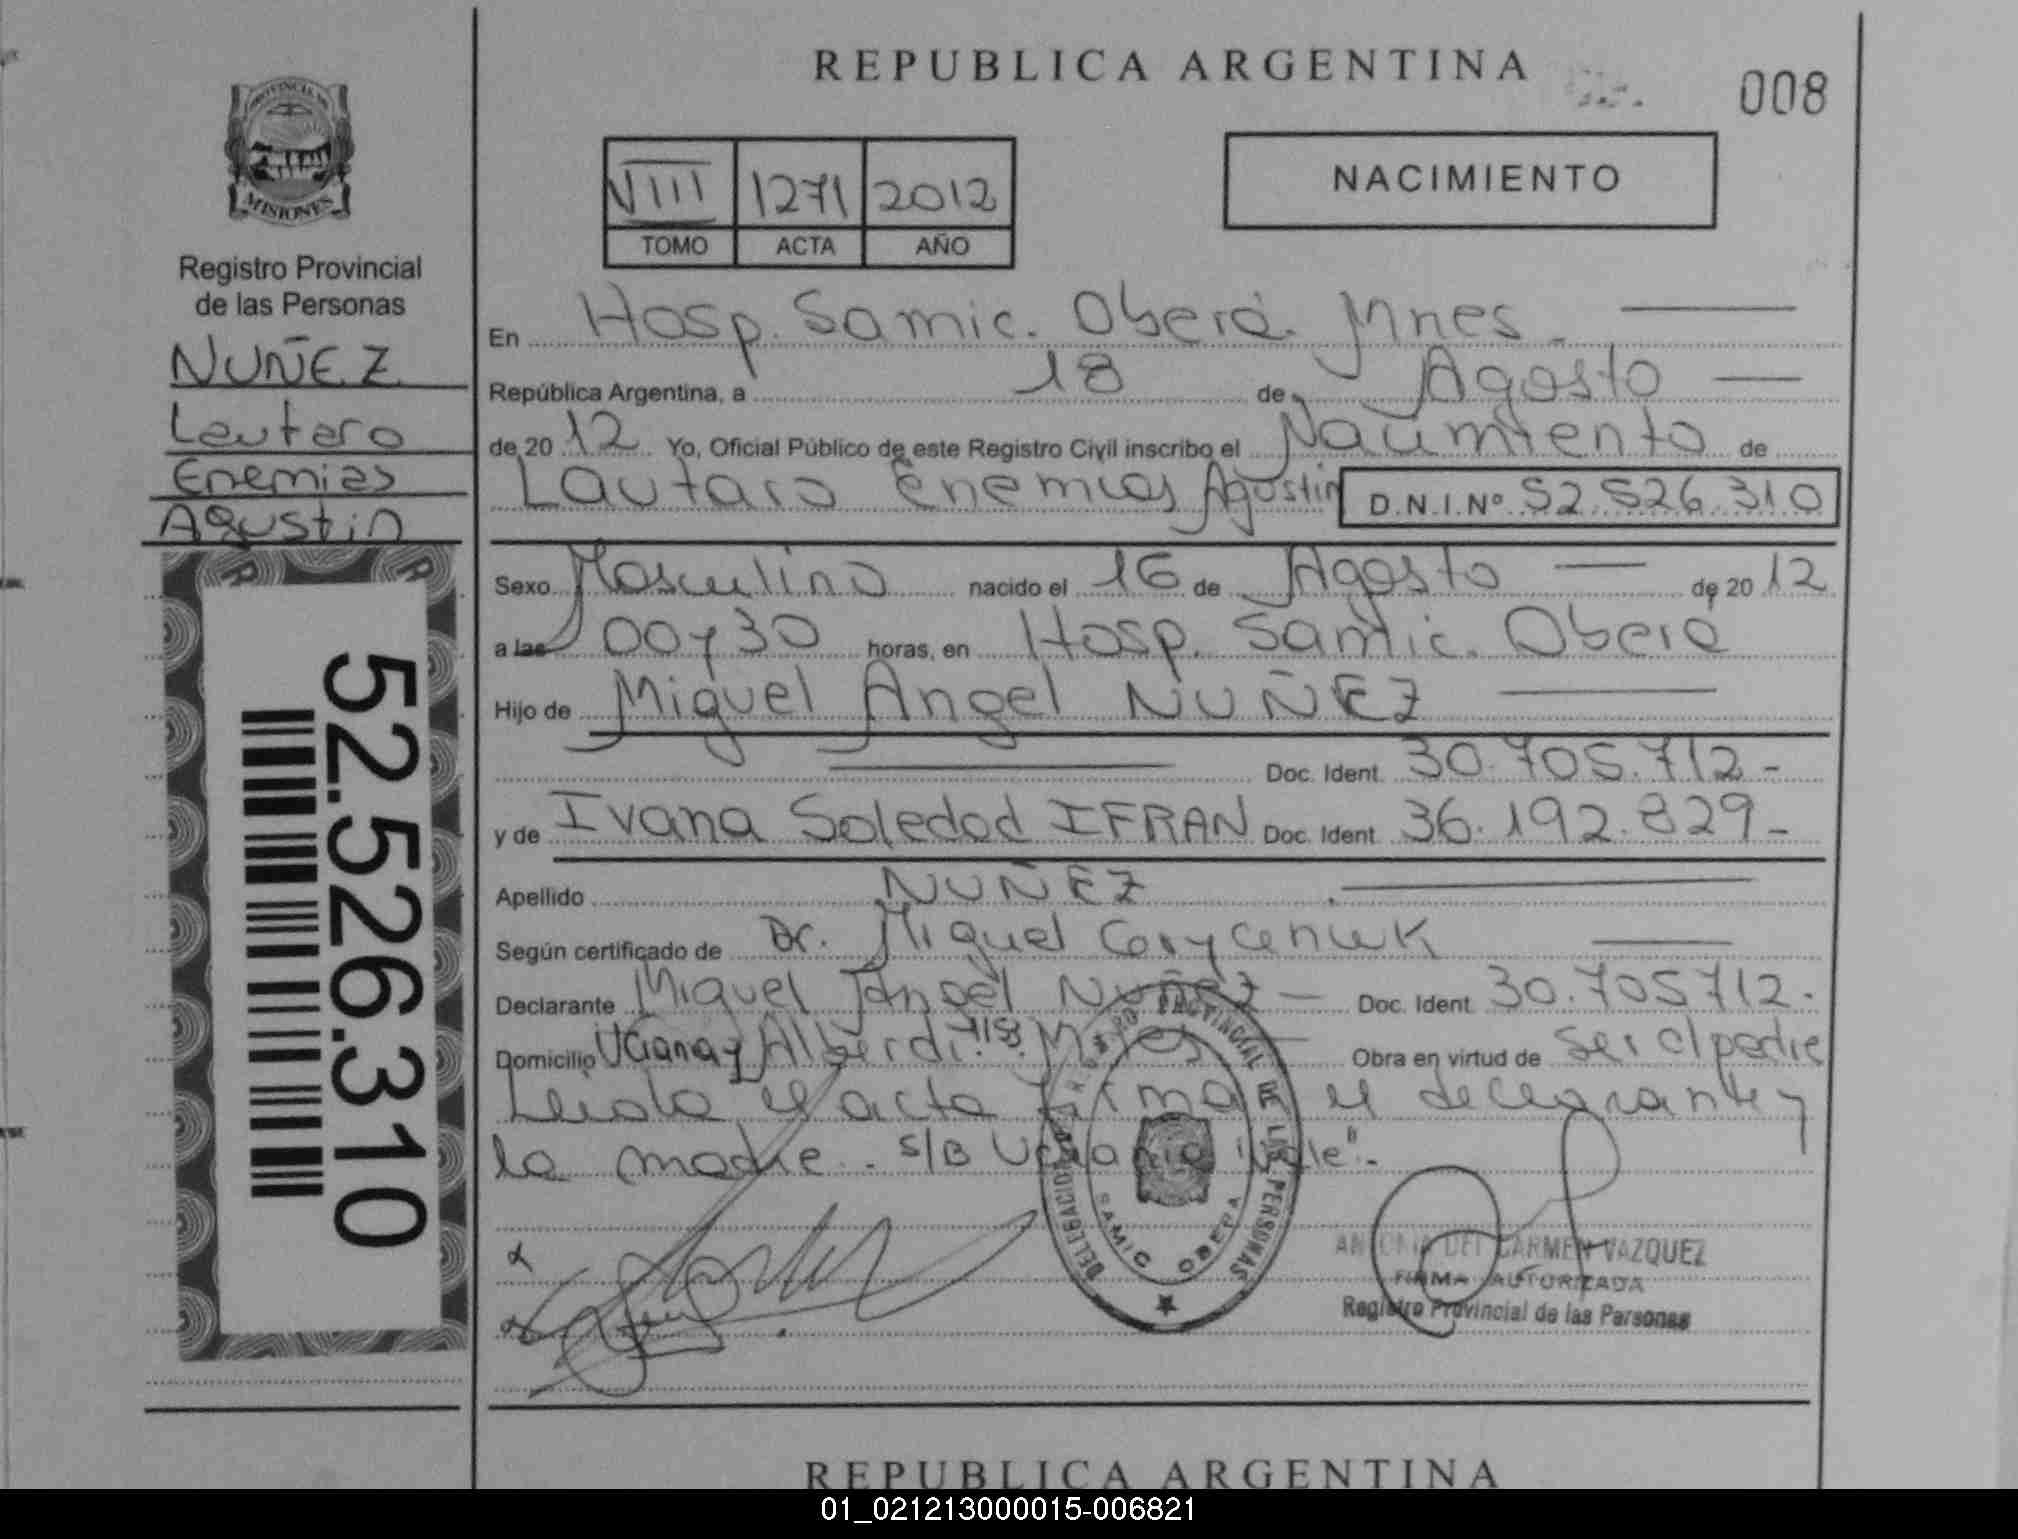 REPUBLICA ARGENTINA
008
PROVINCIA DE
MISIONES
Registro Provincial
de las Personas
NUÑEZ
Lautaro
Enemias
Agustin
52.526.310
VIII 1271 2012
TOMO ACTA AÑO
NACIMIENTO
En Hosp. Samic. Oberá. Mnes.
República Argentina, a 18 de Agosto
de 20 12 Yo, Oficial Público de este Registro Civil inscribo el Nacimiento de
Lautaro Enemias Agustin D.N.I.Nº 52.526.310
Sexo Masculino nacido el 16 de Agosto de 20 12
a las 00 y 30 horas, en Hosp. Samic. Oberá
Hijo de Miguel Angel NUÑEZ
Doc. Ident. 30.705.712-
y de Ivana Soledad IFRAN Doc. Ident. 36.192.829-
Apellido NUÑEZ
Según certificado de Dr. Miguel
Declarante Miguel Angel Nuñez Doc. Ident. 30.705712.
Domicilio Alberdi Obra en virtud de ser el padre
Leida el acta firma el declarante y
la madre. S/B
DELEGACION REGISTRO PROVINCIAL DE LAS PERSONAS
SAMIC OBERA
ANTONIA DEL CARMEN VAZQUEZ
FIRMA AUTORIZADA
Registro Provincial de las Personas
REPUBLICA ARGENTINA
01_021213000015-006821